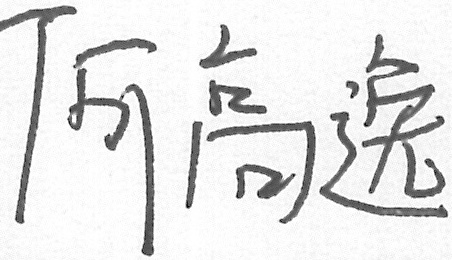 何高逸